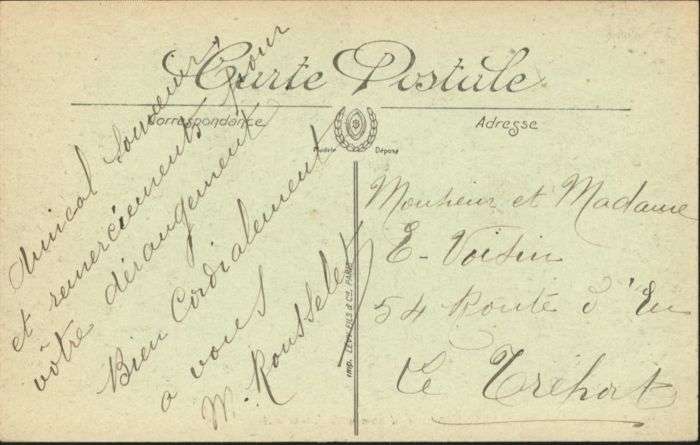 Carte Postale
Correspondance
Adresse
Modèle Déposé
Amical souvenir,
et remerciements pour
vôtre dérangement
Bien Cordialement
a vous
M. Rousselet
Imp. LEVY FILS & Cie PARIS
Monsieur et Madame
E. Voisin
54 Route d'Eu
Le Tréport